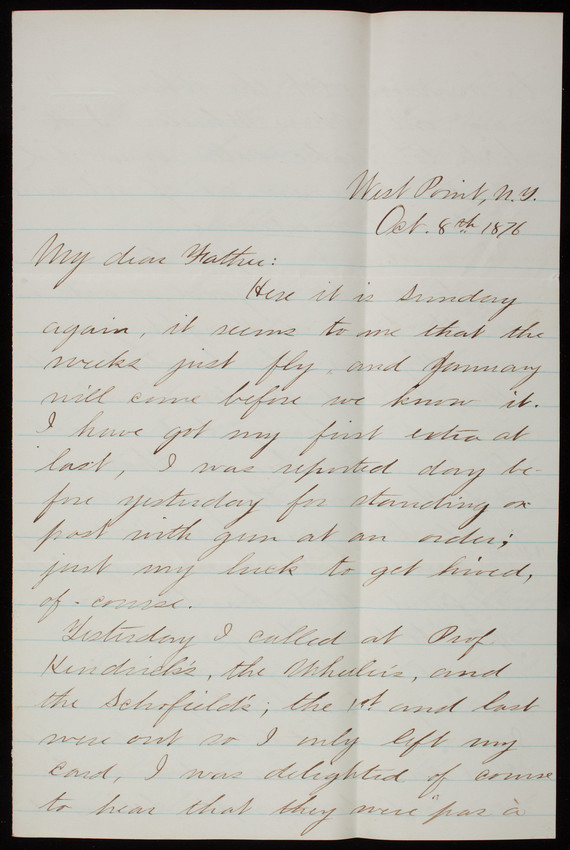 West Point, N.Y.
Oct. 8th 1876
My dear Father:
Here it is Sunday
again, it seems to me that the
weeks just fly, and January
will come before we know it.
I have got my first extra at
last, I was reported day be-
fore yesterday for standing on
post with gun at an order;
just my luck to get hived,
of course.
Yesterday I called at Prof
Kendrick's, the Wheeler's, and
the Schofield's; the 1st and last
were out so I only left my
card, I was delighted of course
to hear that they were "pas à